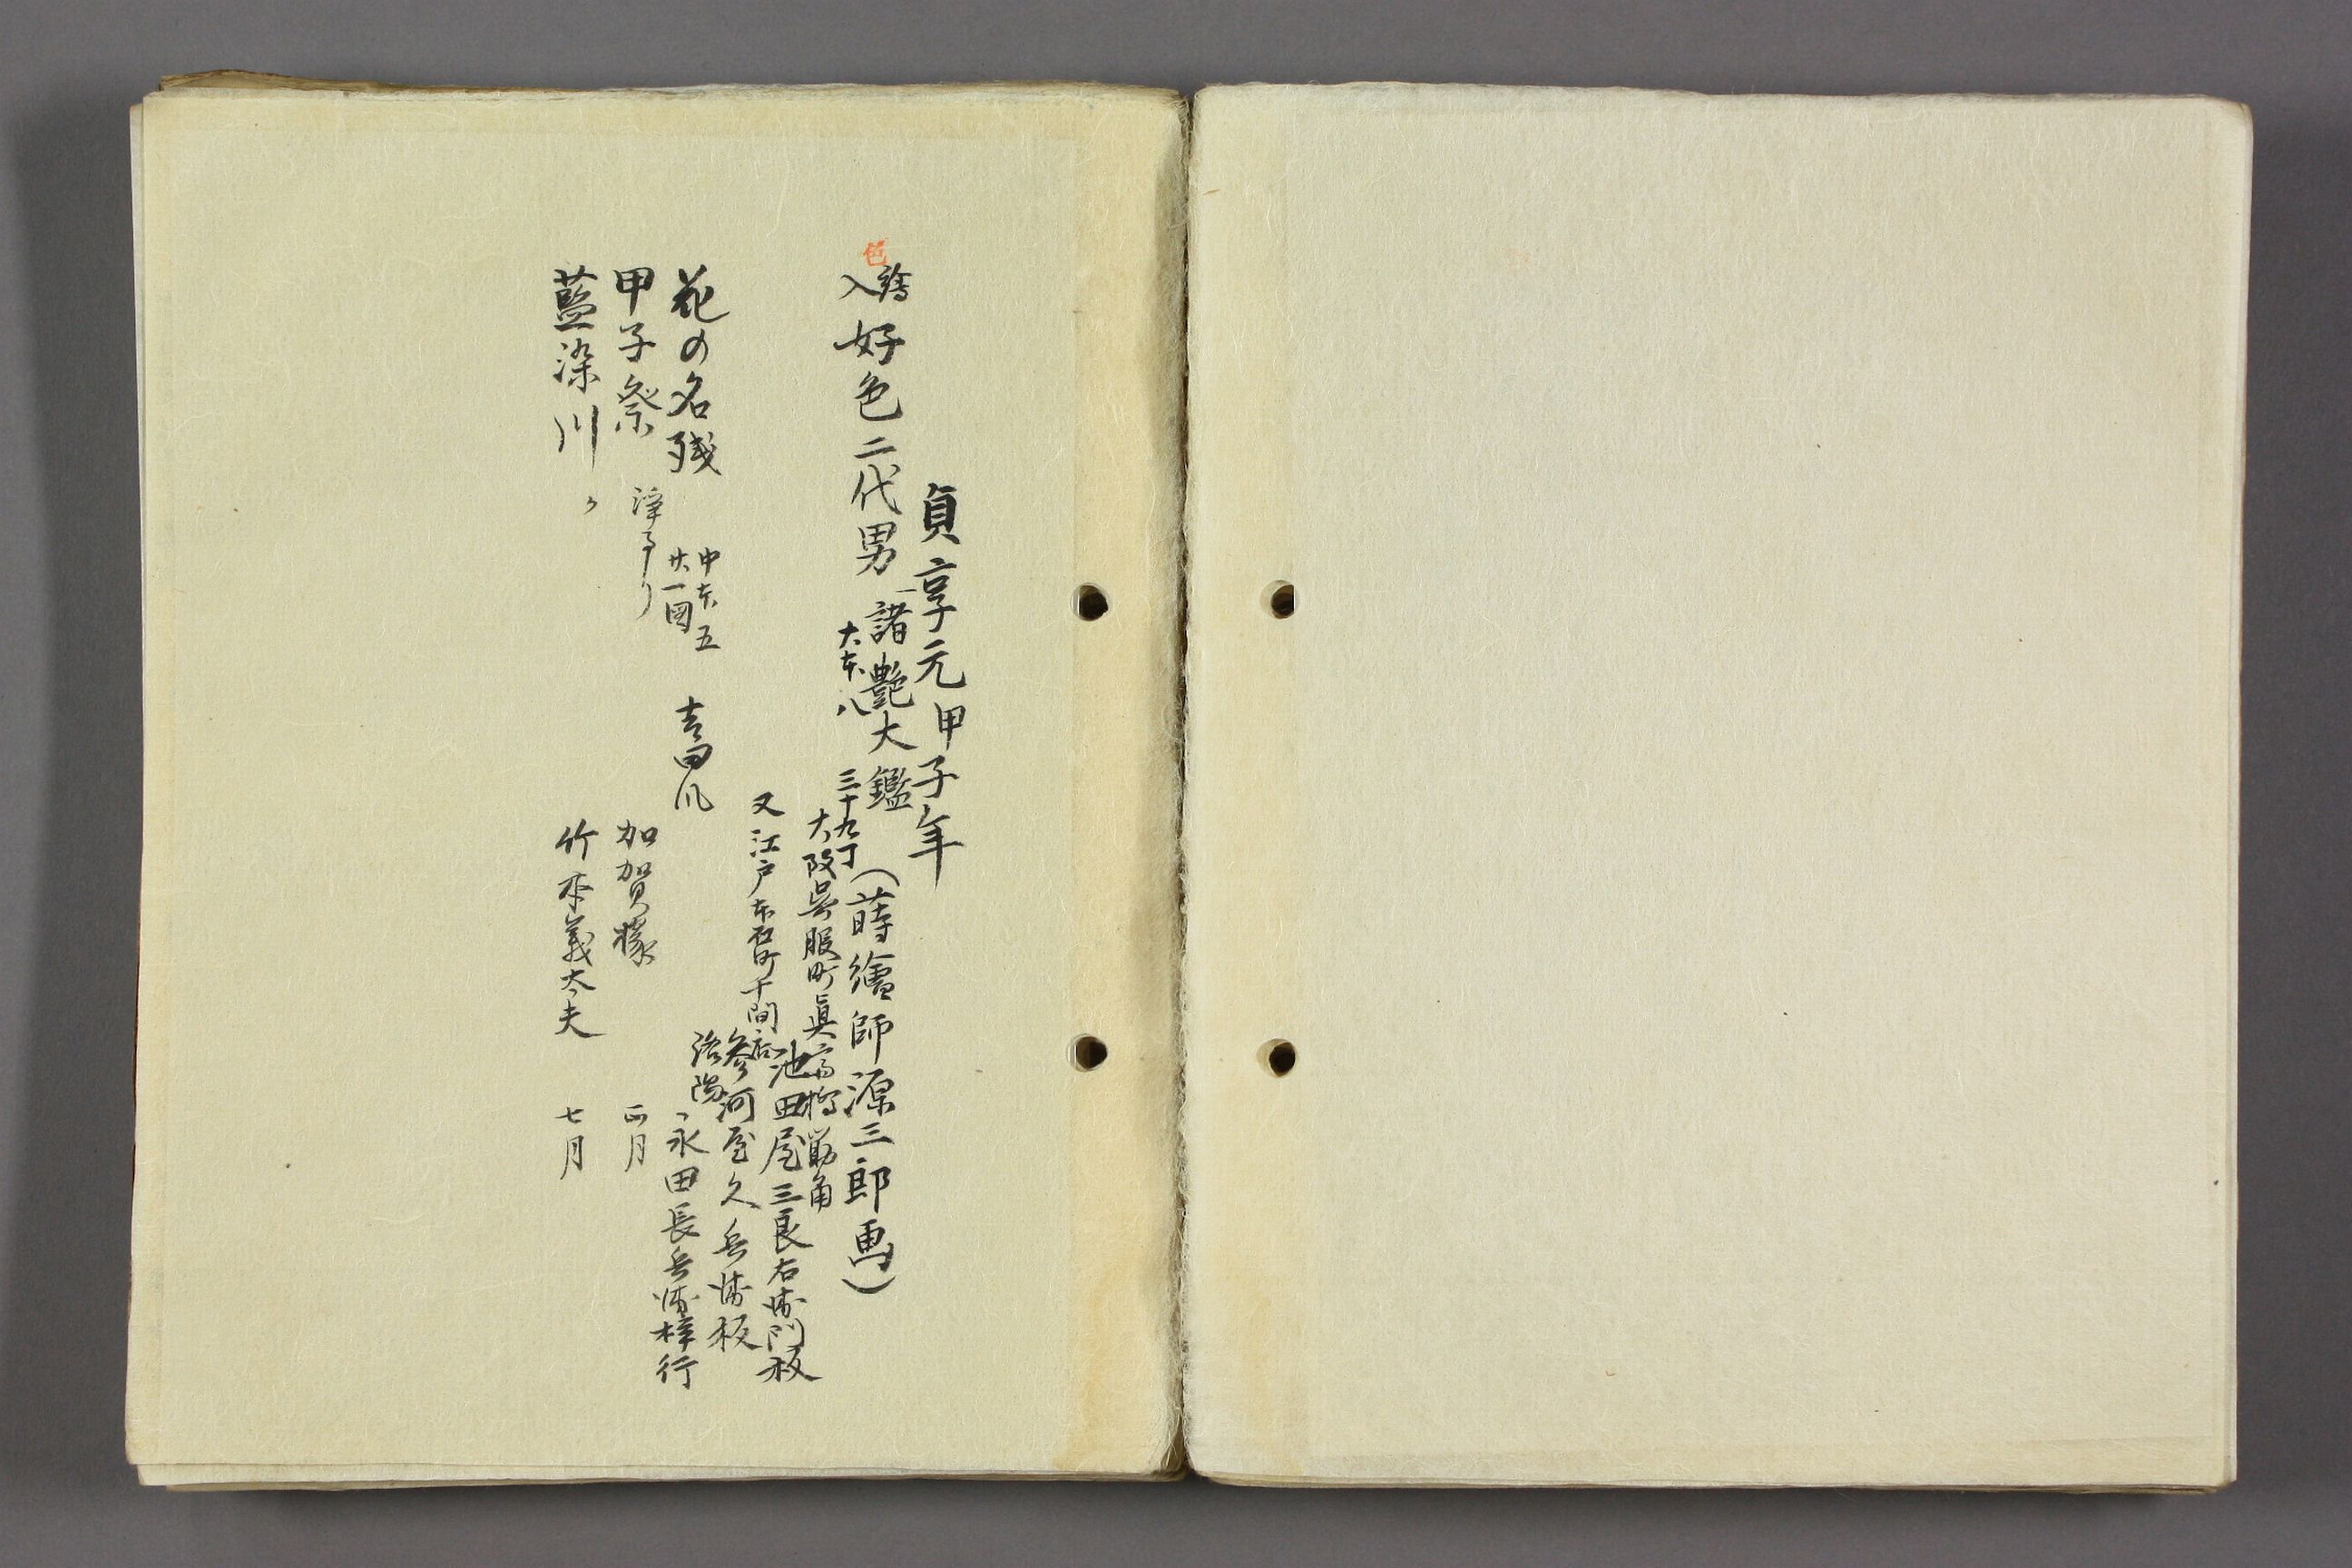 貞享元甲子年
色
繪入 好色二代男 一諸艶大鑑 (蒔繪師源三郎画)
大本八 三十九丁
大阪呉服町眞斎橋筋角
池田屋三良右衛門板
又江戸本石町十間店
参河屋久兵衛板
花の名残 中本五 廿一図 吉田氏 洛陽 永田長兵衛梓行
甲子祭 浄るり 加賀掾 正月
藍染川 〃 竹本義太夫 七月